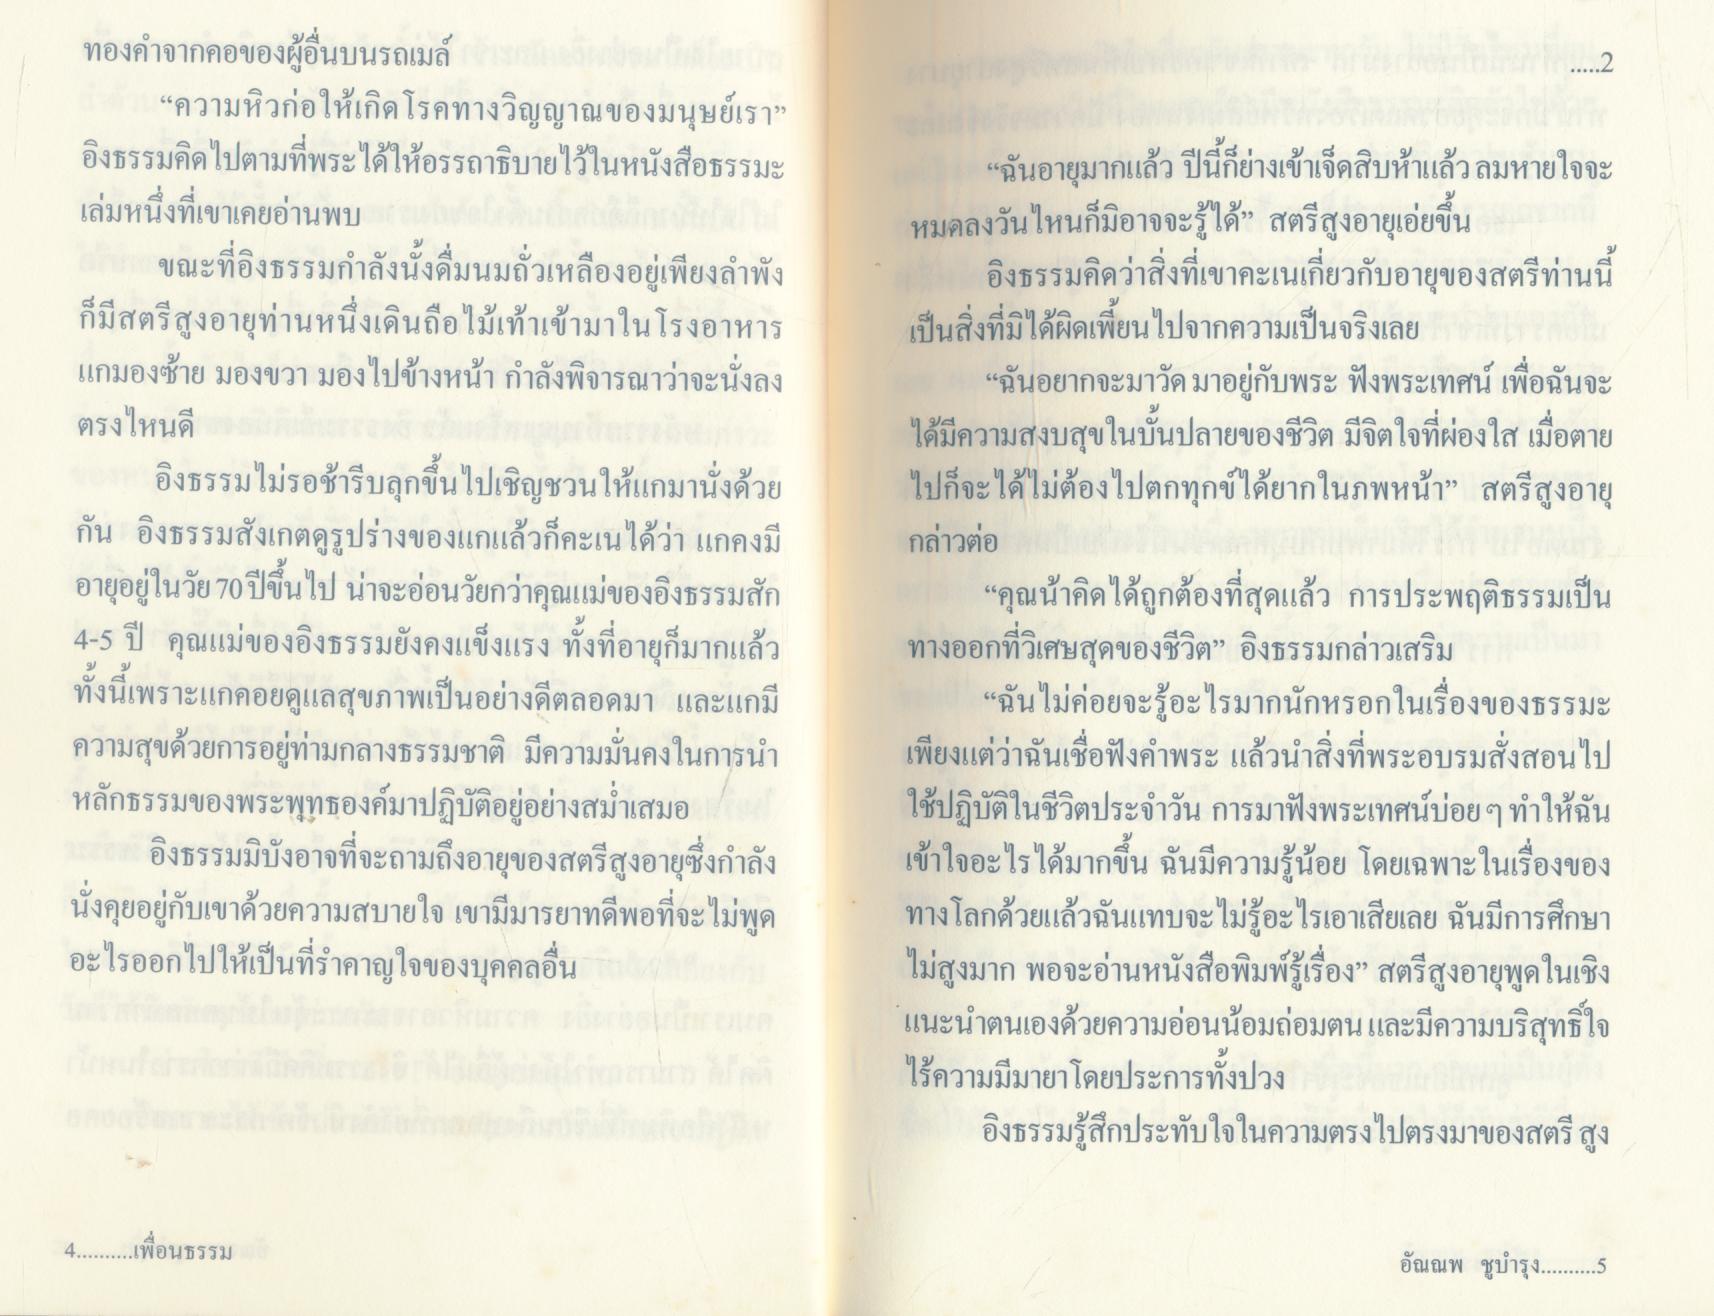 ทองคำจากคอของผู้อื่นบนรถเมล์
“ความหิวก่อให้เกิดโรคทางวิญญาณของมนุษย์เรา”
อิงธรรมคิดไปตามที่พระได้ให้อรรถาธิบายไว้ในหนังสือธรรมะ
เล่มหนึ่งที่เขาเคยอ่านพบ
ขณะที่อิงธรรมกำลังนั้งดื่มนมถั่วเหลืองอยู่เพียงลำพัง
ก็มีสตรีสูงอายุท่านหนึ่งเดินถือไม้เท้าเข้ามาในโรงอาหาร
แกมองซ้าย มองขวา มองไปข้างหน้า กำลังพิจารณาว่าจะนั่งลง
ตรงไหนดี
อิงธรรมไม่รอช้ารีบลุกขึ้นไปเชิญชวนให้แกมานั่งด้วย
กัน อิงธรรมสังเกตดูรูปร่างของแกแล้วก็คะเนได้ว่า แกคงมี
อายุอยู่ในวัย 70 ปีขึ้นไป น่าจะอ่อนวัยกว่าคุณแม่ของอิงธรรมสัก
4-5 ปี คุณแม่ของอิงธรรมยังคงแข็งแรง ทั้งที่อายุก็มากแล้ว
ทั้งนี้เพราะแกคอยดูแลสุขภาพเป็นอย่างดีตลอดมา และแกมี
ความสุขด้วยการอยู่ท่ามกลางธรรมชาติ มีความมั่นคงในการนำ
หลักธรรมของพระพุทธองค์มาปฏิบัติอยู่อย่างสม่ำเสมอ
อิงธรรมมิบังอาจที่จะถามถึงอายุของสตรีสูงอายุซึ่งกำลัง
นั่งคุยอยู่กับเขาด้วยความสบายใจ เขามีมารยาทดีพอที่จะไม่พูด
อะไรออกไปให้เป็นที่รำคาญใจของบุคคลอื่น
4..........เพื่อนธรรม
.....2
“ฉันอายุมากแล้ว ปีนี้ก็ย่างเข้าเจ็ดสิบห้าแล้ว ลมหายใจจะ
หมดลงวันไหนก็มิอาจจะรู้ได้” สตรีสูงอายุเอ่ยขึ้น
อิงธรรมคิดว่าสิ่งที่เขาคะเนเกี่ยวกับอายุของสตรีท่านนี้
เป็นสิ่งที่มิได้ผิดเพี้ยนไปจากความเป็นจริงเลย
“ฉันอยากจะมาวัด มาอยู่กับพระ ฟังพระเทศน์ เพื่อฉันจะ
ได้มีความสงบสุขในบั้นปลายของชีวิต มีจิตใจที่ผ่องใส เมื่อตาย
ไปก็จะได้ไม่ต้องไปตกทุกข์ได้ยากในภพหน้า” สตรีสูงอายุ
กล่าวต่อ
“คุณน้าคิดได้ถูกต้องที่สุดแล้ว การประพฤติธรรมเป็น
ทางออกที่วิเศษสุดของชีวิต” อิงธรรมกล่าวเสริม
“ฉันไม่ค่อยจะรู้อะไรมากนักหรอกในเรื่องของธรรมะ
เพียงแต่ว่าฉันเชื่อฟังคำพระ แล้วนำสิ่งที่พระอบรมสั่งสอนไป
ใช้ปฏิบัติในชีวิตประจำวัน การมาฟังพระเทศน์บ่อย ๆ ทำให้ฉัน
เข้าใจอะไรได้มากขึ้น ฉันมีความรู้น้อย โดยเฉพาะในเรื่องของ
ทางโลกด้วยแล้วฉันแทบจะไม่รู้อะไรเอาเสียเลย ฉันมีการศึกษา
ไม่สูงมาก พอจะอ่านหนังสือพิมพ์รู้เรื่อง” สตรีสูงอายุพูดในเชิง
แนะนำตนเองด้วยความอ่อนน้อมถ่อมตน และมีความบริสุทธิ์ใจ
ไร้ความมีมายาโดยประการทั้งปวง
อิงธรรมรู้สึกประทับใจในความตรงไปตรงมาของสตรี สูง
อัณณพ ชูบำรุง..........5